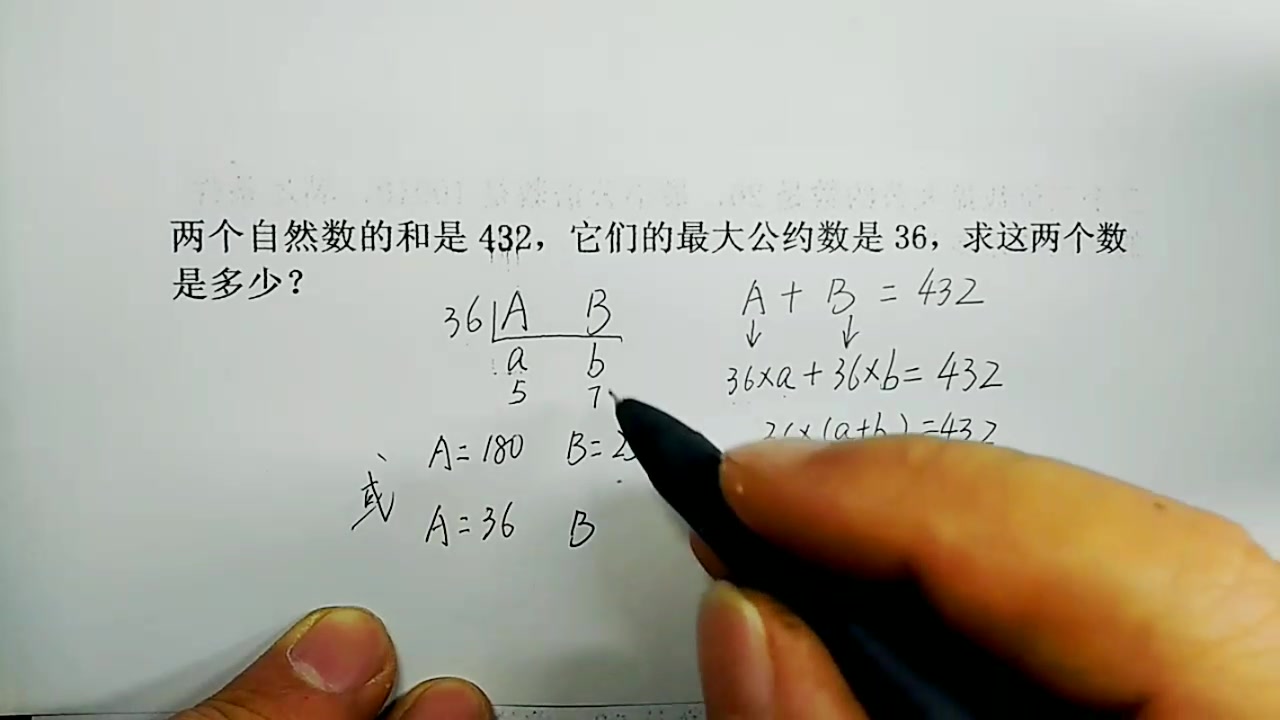 两个自然数的和是 432，它们的最大公约数是 36，求这两个数
是多少？
36 A B
a b
5 7
A=180 B=2
或 A=36 B
A+B=432
↓ ↓
36×a+36×b=432
36×(a+b)=432